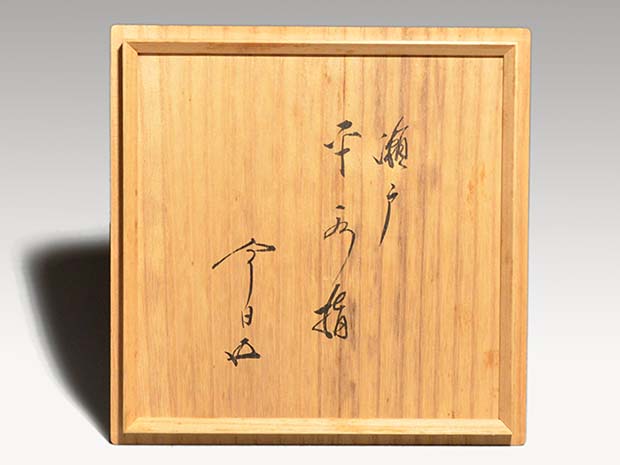 瀬戸
平水指
今日庵